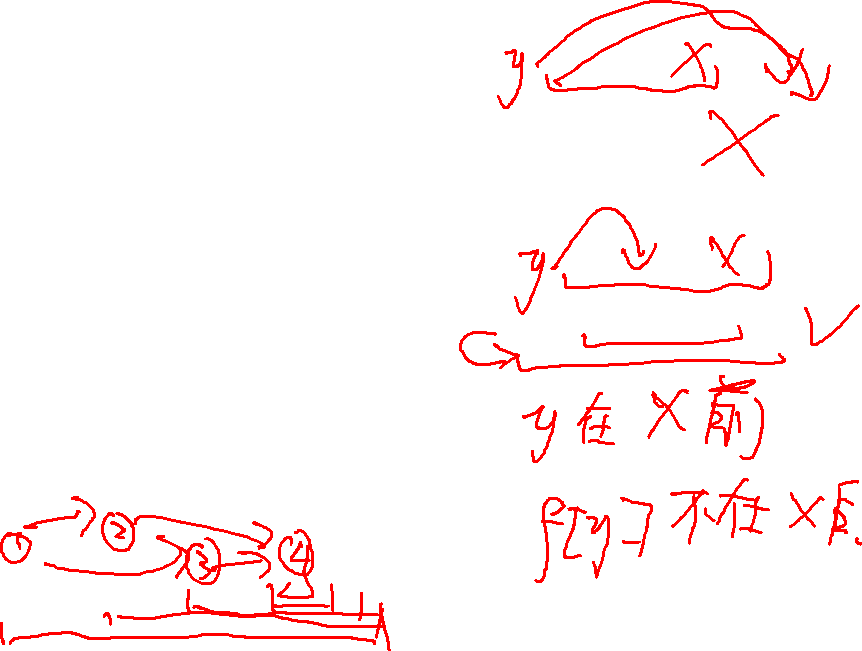 y x
x
y x
y 在 x 前
f[y] 不在 x 后
1 2 3 4